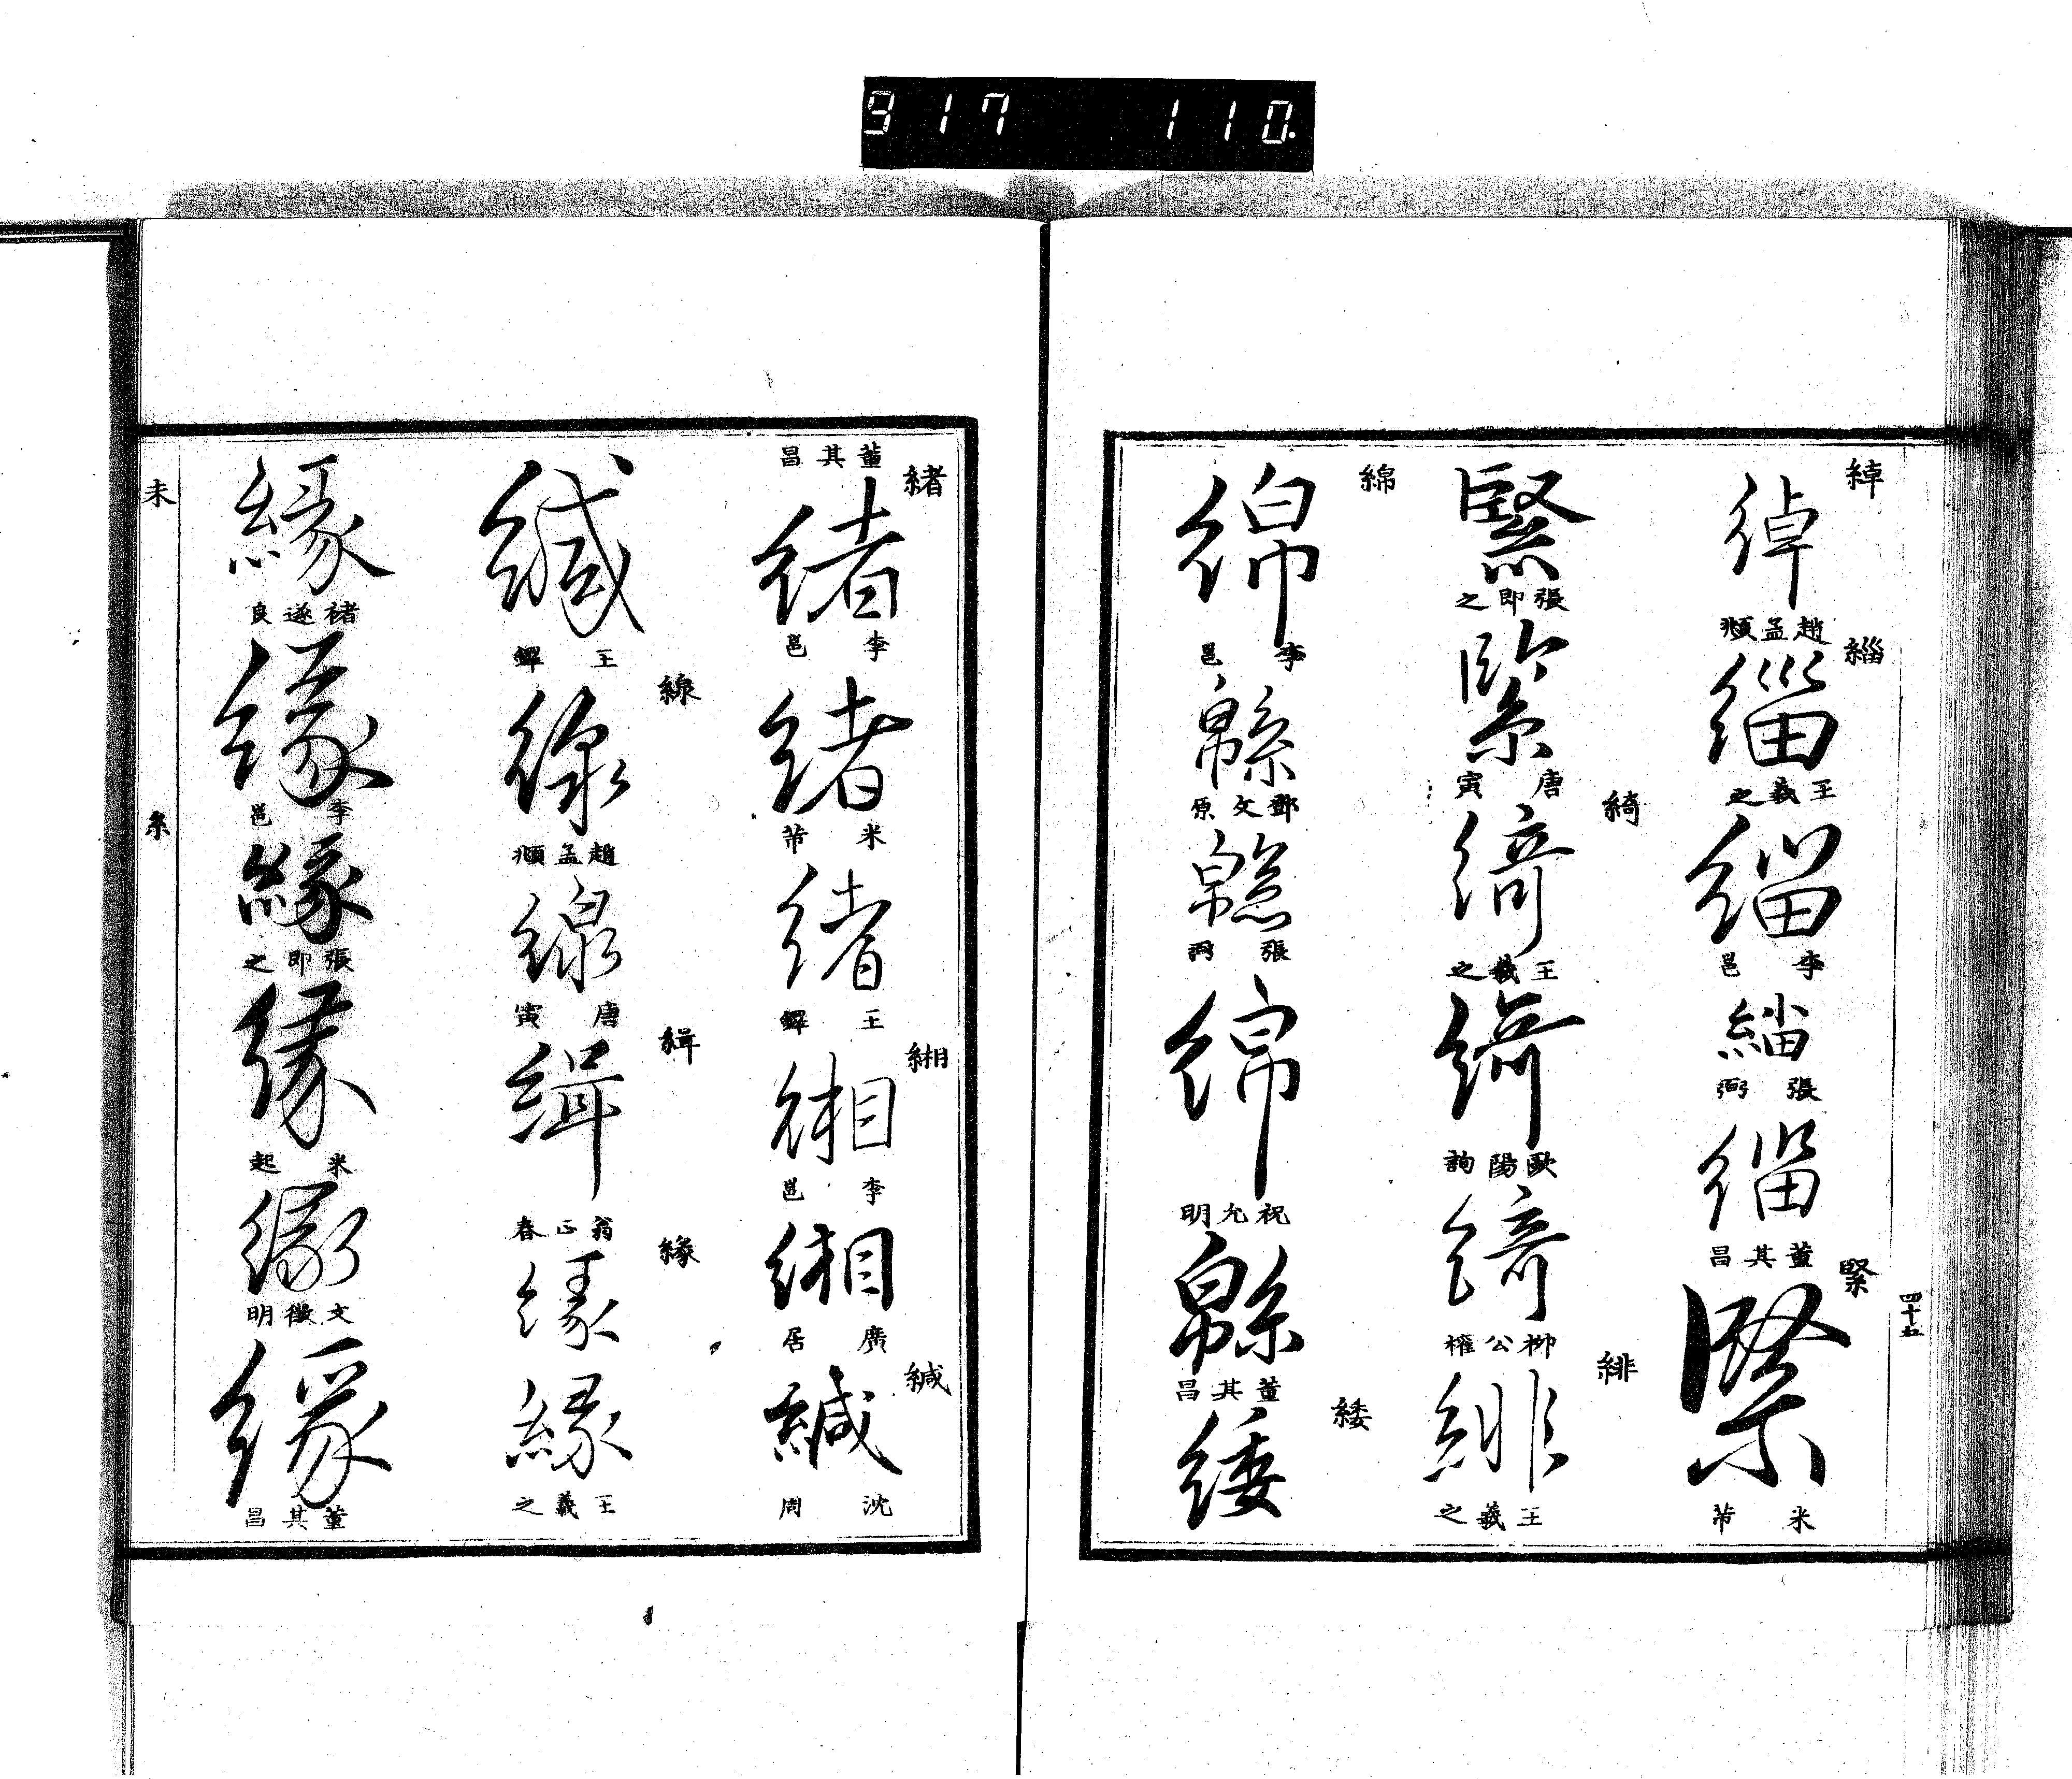 917 110.
綽
綽
趙孟頫
緇
緇
王羲之
緇
李邕
緇
張弼
緇
董其昌
緊
緊
米芾
四十五
緊
張即之
緊
唐寅
綺
綺
王羲之
綺
歐陽詢
綺
柳公權
緋
緋
王羲之
綿
綿
李邕
緜
鄧文原
緜
張丙
綿
祝允明
緜
董其昌
緌
緌
董其昌
緒
緒
李邕
緒
米芾
緒
王鐸
緗
緗
李邕
緗
廣居
緘
緘
沈周
緘
王鐸
線
線
趙孟頫
線
唐寅
緝
緝
翁正春
緣
緣
緣
王羲之
緣
褚遂良
緣
李邕
緣
張即之
緣
米起
緣
文徵明
緣
董其昌
未
糸